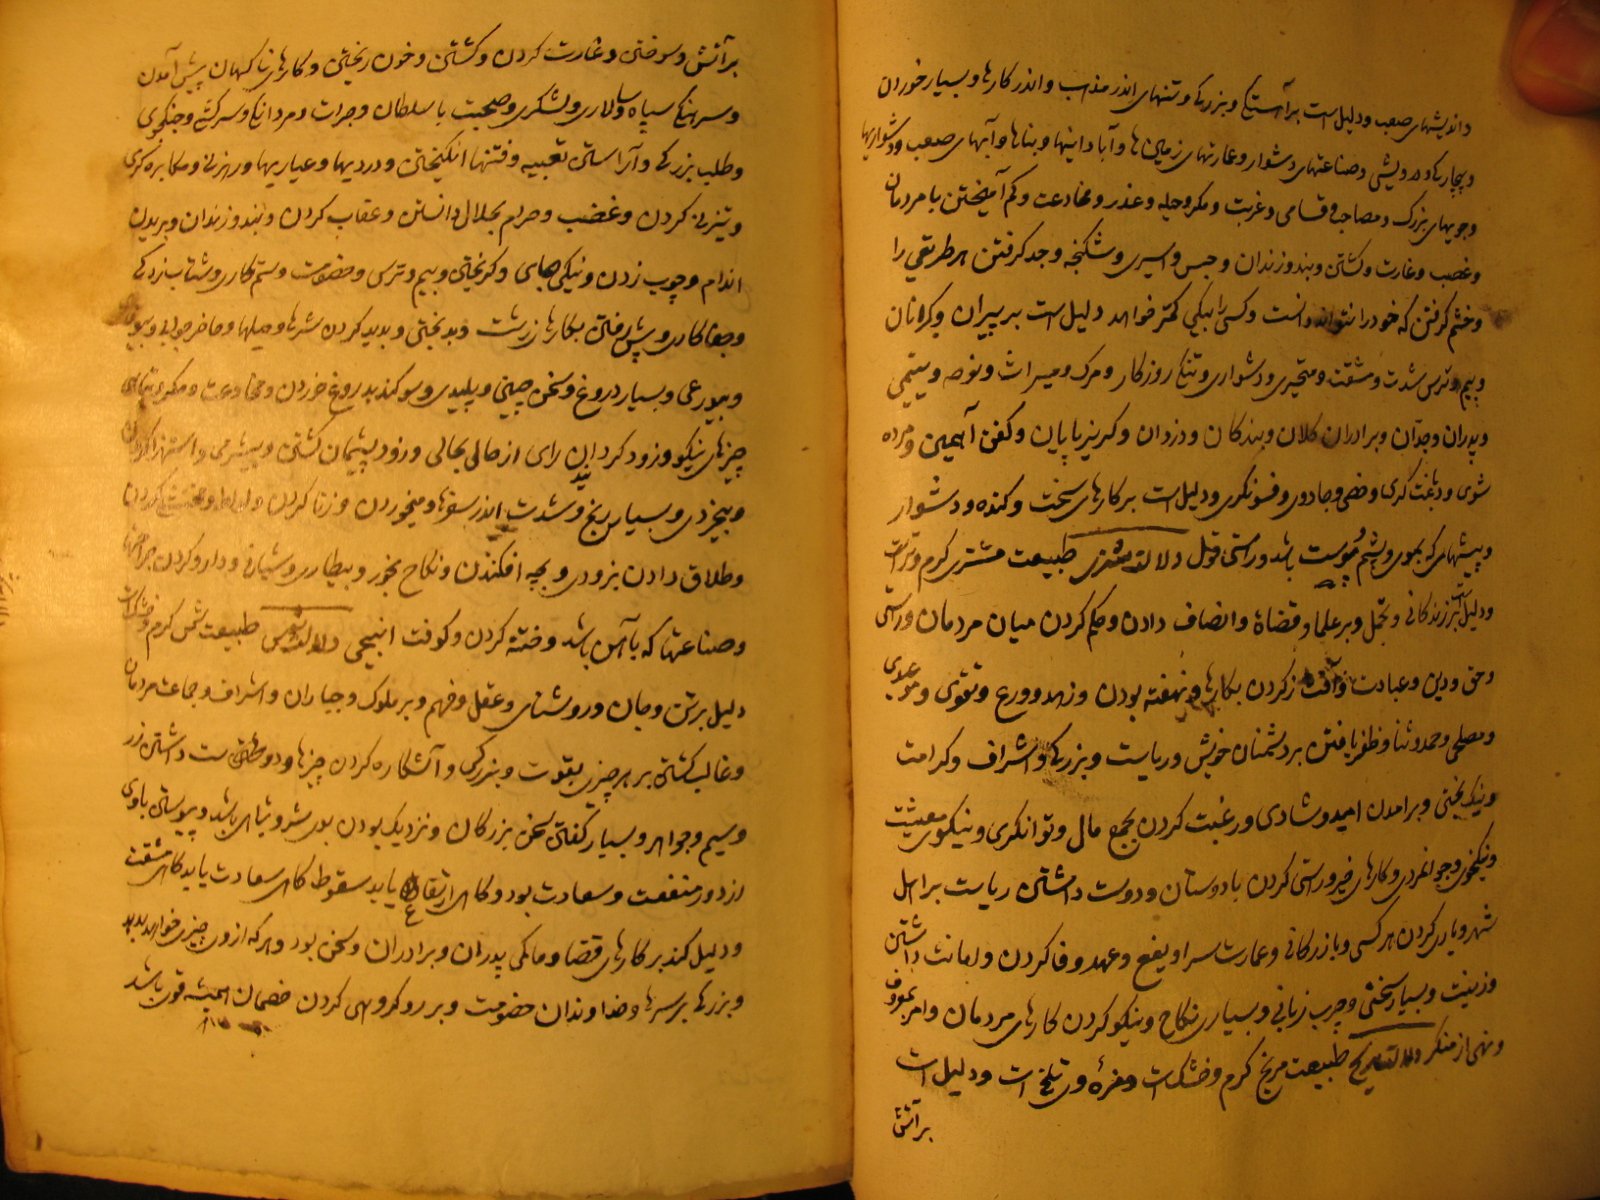 و اندیشهای صعب و دلیل است برآهستگی و بزرگی و تنهای اندر مذهب و اندر کارها و بسیار خوردن
و بیچارگی و درویشی و صناعتهای دشوار و عمارتهای زمین‌ها و آبادانیها و بناها و آبهای صعب و دشواریها
و جویهای بزرگ و مصاحبی و قسامی و غربت و مکر و حیله و عذر و مخادعت و کم آمیختن با مردمان
و غصب و غارت و کشتن و بند و زندان و حبس و اسیری و شکنجه و جد گرفتن هر طریقی را
و خشم گرفتن که خود را نتواند داشت و کسی را نیکی کمتر خواهد دلیل است بر پیران و گرانان
و بیم و ترس شدت و مشقت و متحیری و دشواری و تنگی روزگار و مرگ و میراث و نوحه و یتیمی
و پدران و جدان و برادران کلان و بندگان و دزدان و گریزپایان و کفن آهیجن و مرده
شوی و دباغت گری و خصی و جادوی و فسونگری و دلیل است بر کارهای سخت و کنده و دشوار
و پیشهای که بموی و پشم و پوست باشد و راستی قول دلالة مشتری طبیعت مشتری گرم و تر است
و دلیل است بر زندگانی و تحمل و بر علما و قضاة و انصاف دادن و حکم کردن میان مردمان و راستی
و حق و دین و عبادت و آغاز کردن بکارها و نهفته بودن و زهد و ورع و تقوی و موحدی
و مصلحی و حمد و ثنا و ظفر یافتن بر دشمنان خویش و ریاست و بزرگی و اشراف و کرامت
و نیک بختی و برامدن امید و شادی و رغبت کردن بجمع مال و توانگری و نیکوی معیشت
و نیکخوی و جوانمردی و کارهای خیر و راستی کردن با دوستان و دوست داشتن ریاست بر اهل
شهر و یاری کردن هر کسی و بازرگانی و عمارت سرا و یفع و عهد وفا کردن و امانت داشتن
و زینت و بسیار سخنی و چرب زبانی و بسیاری نکاح و نیکو کردن کارهای مردمان و امر بمعروف
و نهی از منکر دلالة مریخ طبیعت مریخ گرم و خشک است و مزهٔ وی تلخ است و دلیل است
بر آتش
بر آتش و سوختن و غارت کردن و کشتن و خون ریختن و کارهای ناگهان پیش آمدن
و سرهنگی سپاه سالاری و لشکری و صحبت با سلطان و جرات و مردانگی و سرکشی و جنگجوی
و طلب بزرگی و آراستن تعبیه و فتنها انگیختن و دزدیها و عیاریها و رهزنی و مکابره گری
و تیززنی کردن و غضب و حرام بحلال دانستن و عقاب کردن و بند و زندان و بریدن
اندام و چوب زدن و نیکی بجای و گریختن و بیم و ترس و خصومت و ستم کاری و شتاب زدگی
و جفا کاری و پیش رفتن بکارهای زشت و بدبختی و پدید کردن شرها و حیلها و حاضر جوابی و
و بسیار دروغ و سخن چینی و پلیدی و سوگند بدروغ خوردن و مخادعت و مکر و تباهی
چیزهای نیکو و زود گردانیدن رای از حالی بحالی و زود پشیمان گشتن و بیشرمی و استهزا کردن
و بیخردی و بسیاری رنج و شدت اندر سفرها و میخوردن و زنا کردن و لواطه
و طلاق دادن بزودی و بچه افکندن و نکاح بجور و بیطاری و شبانی و دارو کردن جراحتها
و صناعتها که بآهن باشد و ختنه کردن و کوفت دلالة شمس طبیعت شمس گرم و خشک است
دلیل بر تن و جان و روشنای و عقل و فهم و بر ملوک و جباران و اشراف و جماعت مردمان
و غالب گشتن بر هر چیزی بقوت و بزرگی و آشکاره کردن چیزها و دوست داشتن زر
و سیم و جواهر و بسیار گفتن سخن بزرگان و نزدیک بودن بوی شر و تباهی باشد و پیوستن باوی
از دور منفعت و سعادت بود و گاهی ارتفاع یابد سقوط گاهی سعادت یابد گاهی مشقت
و دلیل کند بر کارهای قضا و مالکی پدران و برادران و سخن بود و هر که از وی چیزی خواهد بدید
و بزرگها بر سرها و خداوندان خصومت و بر رو گروهی کردن خصمان همیشه قوی باشد